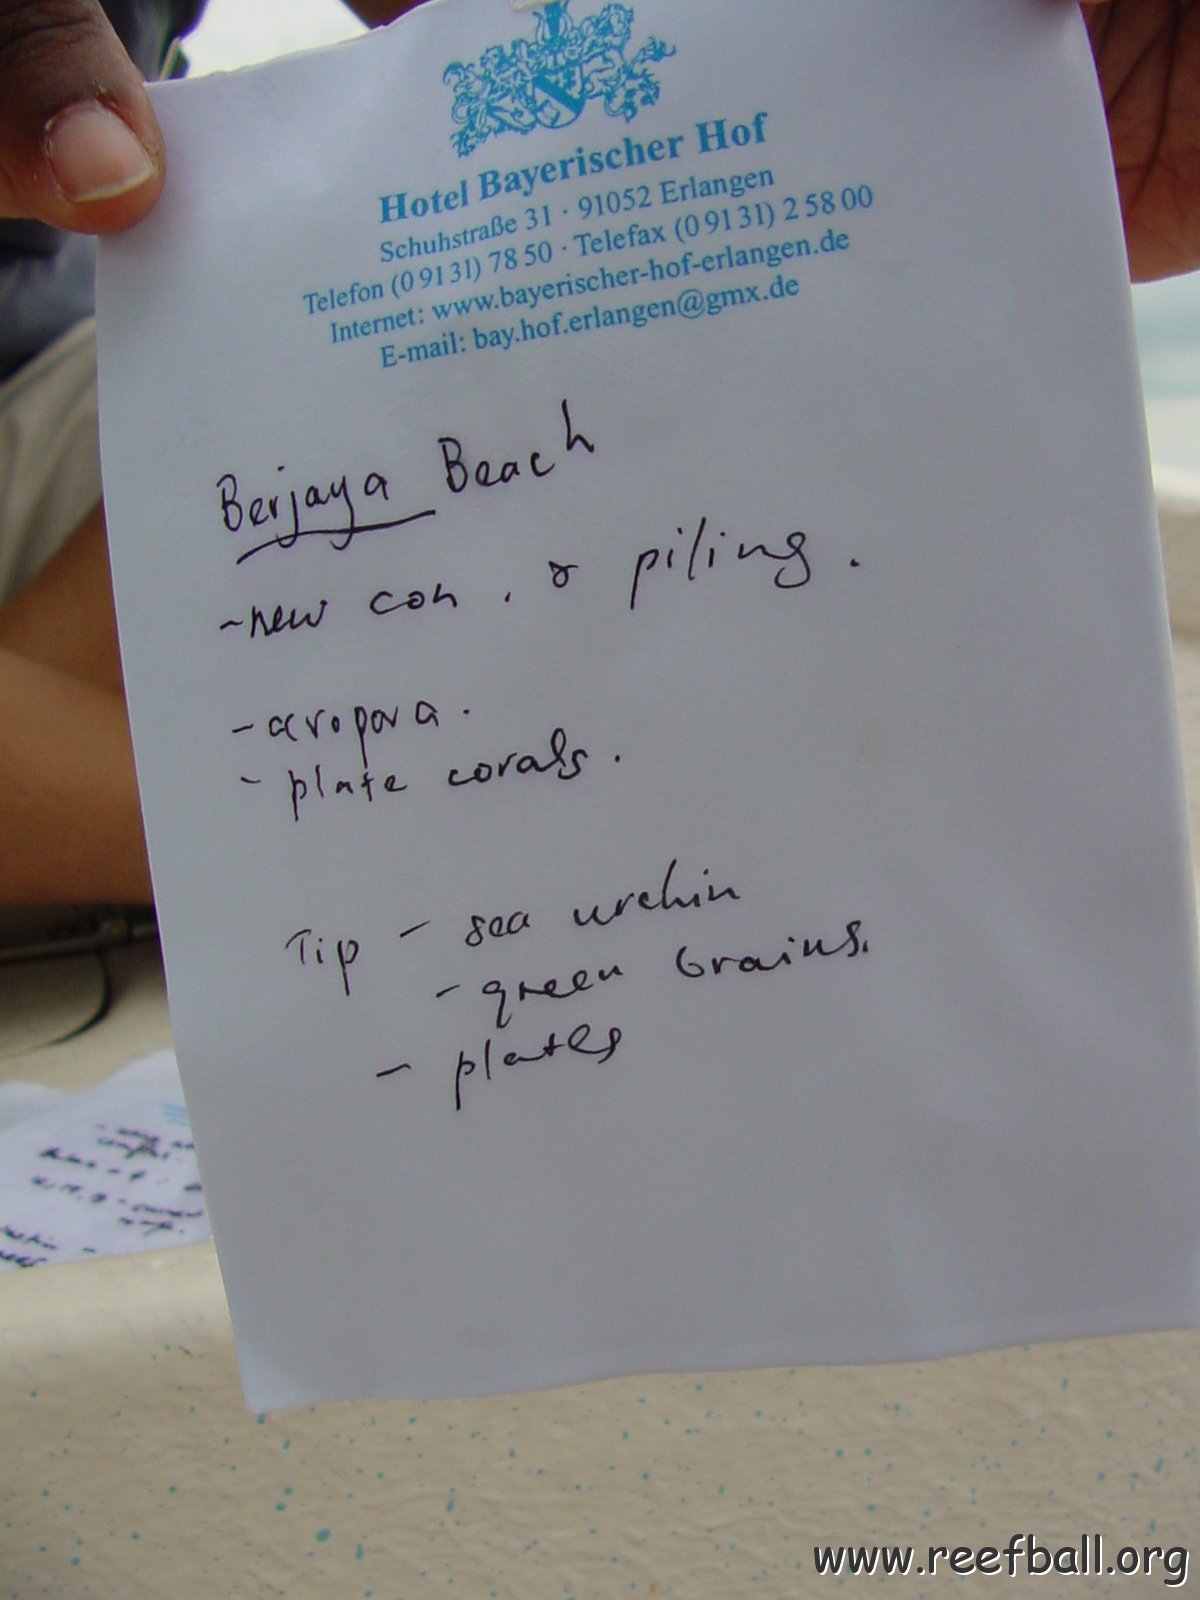 Hotel Bayerischer Hof
Schuhstraße 31 · 91052 Erlangen
Telefon (0 91 31) 78 50 · Telefax (0 91 31) 2 58 00
Internet: www.bayerischer-hof-erlangen.de
E-mail: bay.hof.erlangen@gmx.de
Berjaya Beach
- new con. & piling.
- acropora.
- plate corals.
Tip - sea urchin
- green brains.
- plates
www.reefball.org